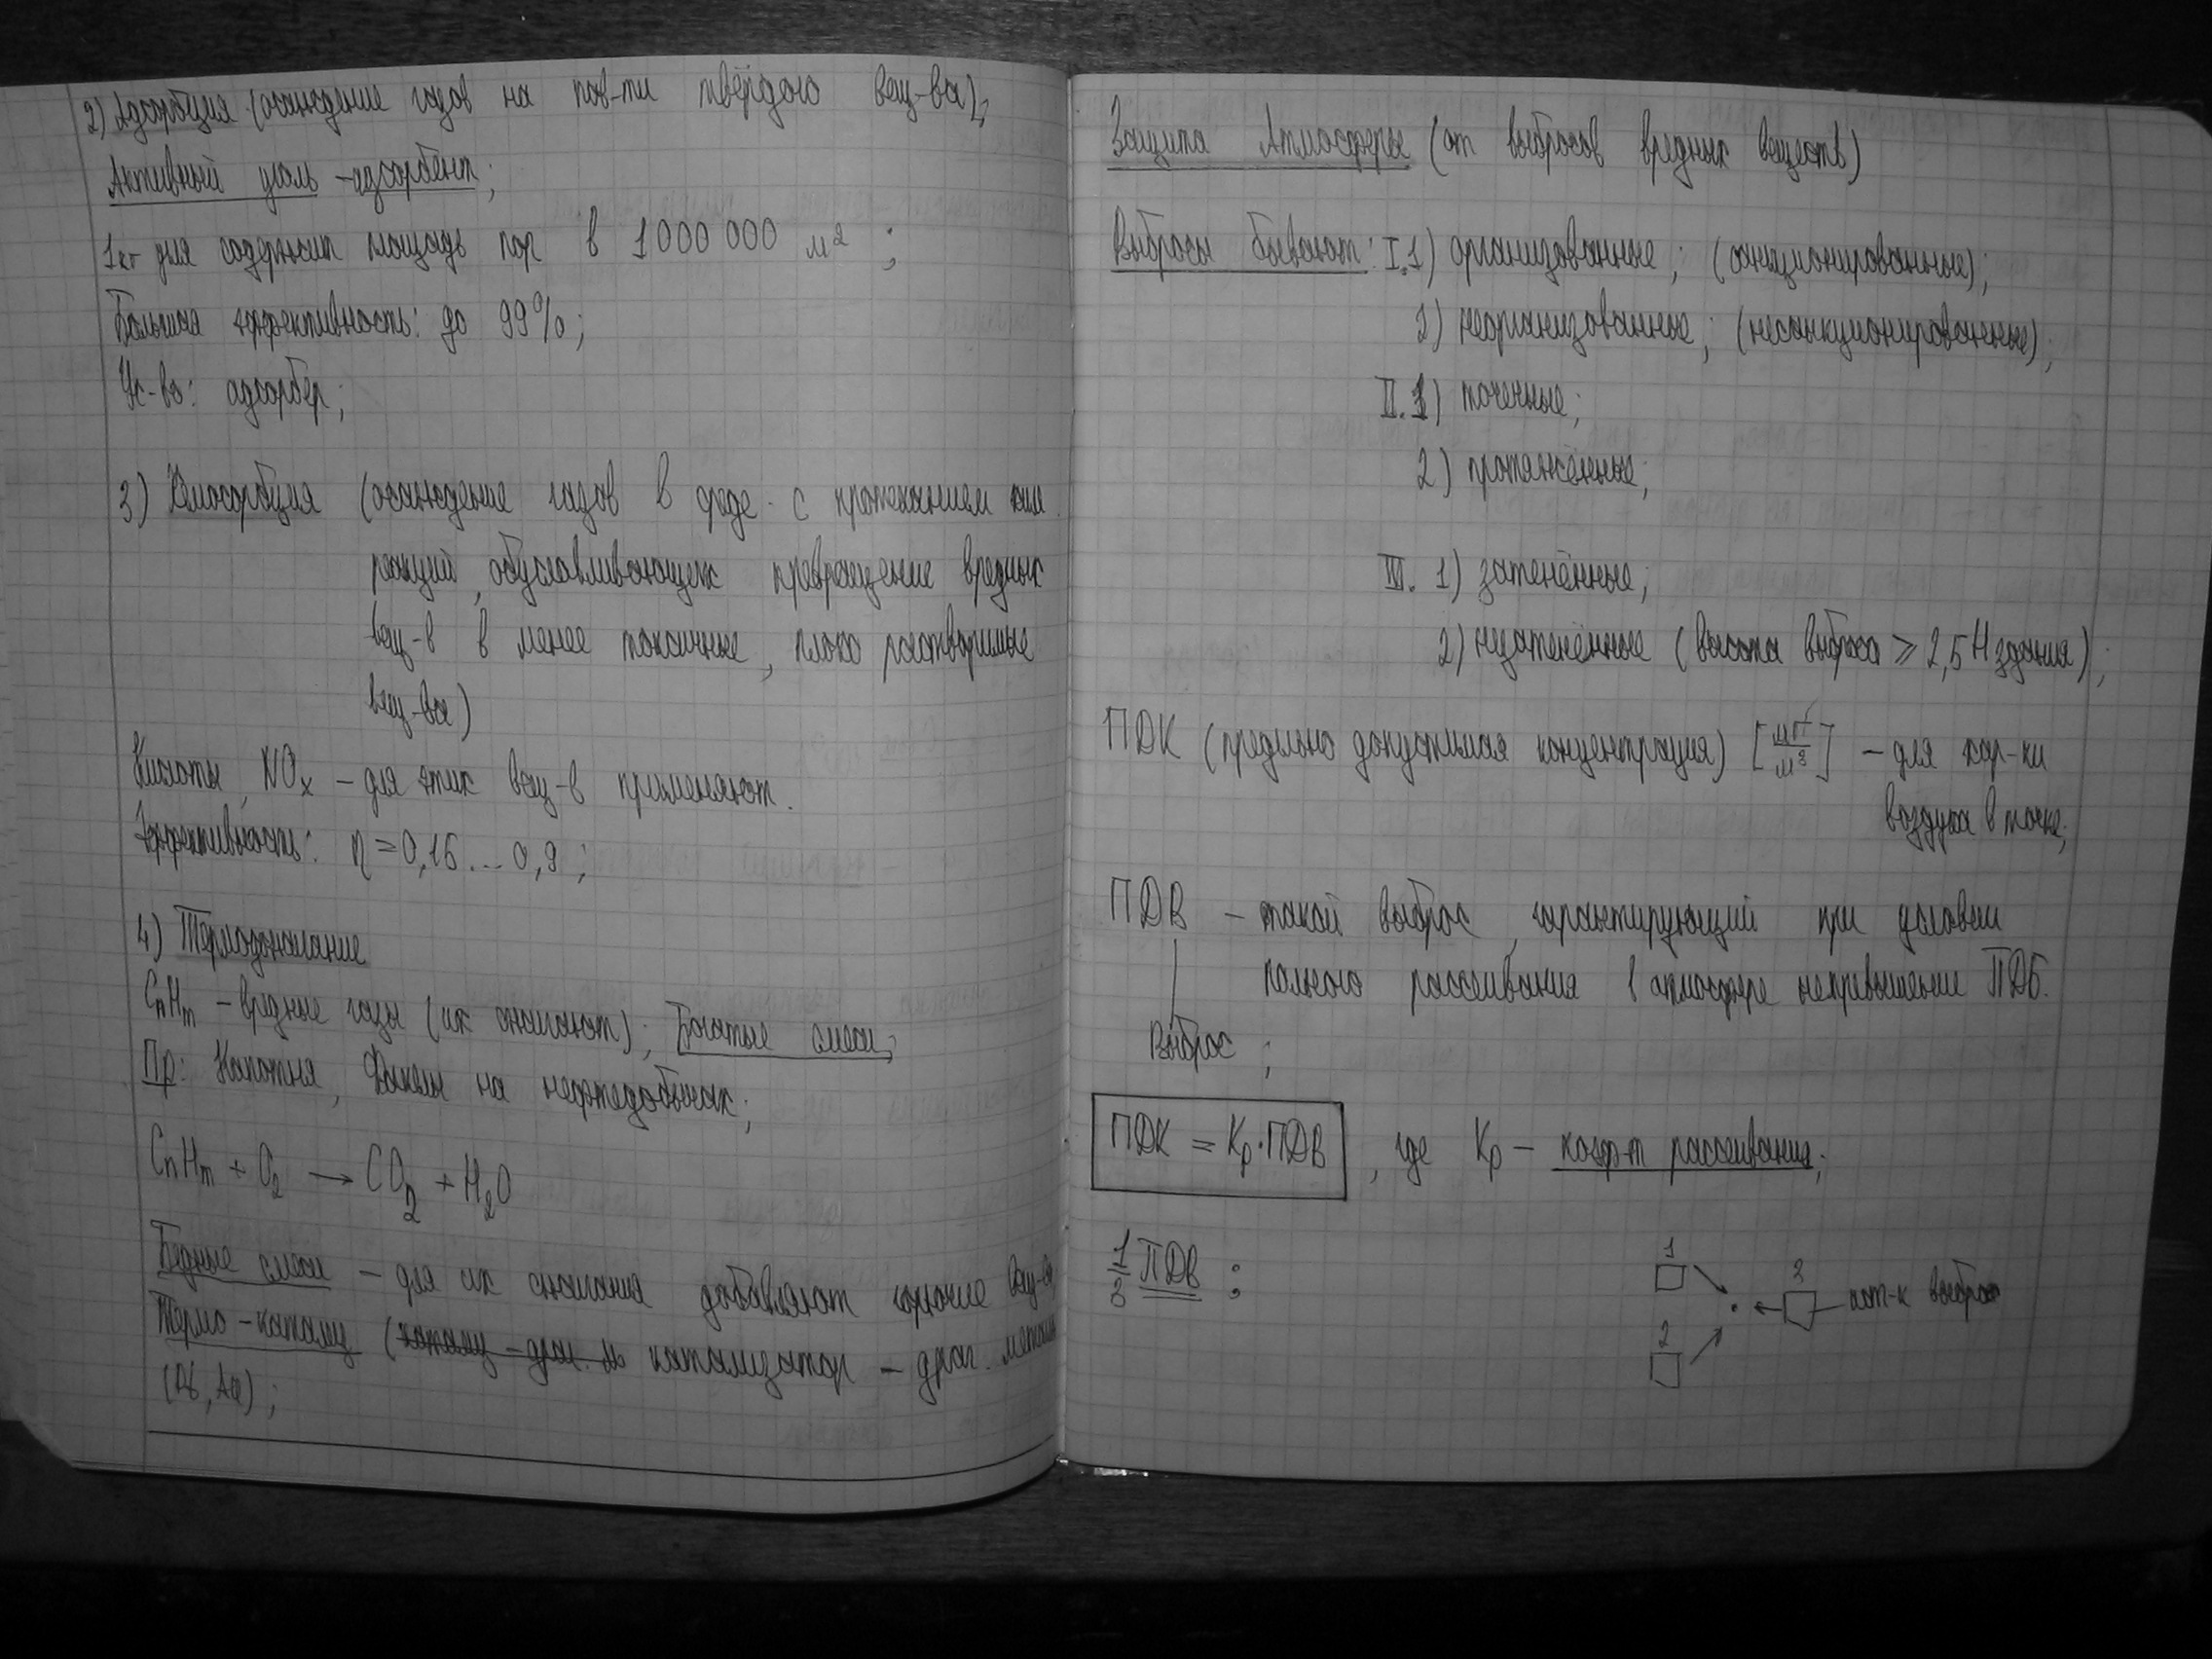 2) Адсорбция (осаждение газов на пов-ти твёрдого вещ-ва);
Активный уголь - адсорбент;
1кг для содержит площадь пор в 1000 000 м²;
Большая эффективность: до 99%;
Ус-во: адсорбер;
3) Хемосорбция (осаждение газов в среде с протеканием хим.
реакций, обуславливающих превращение вредных
вещ-в в менее токсичные, плохо растворимые
вещ-ва)
Кислоты, NOx - для этих вещ-в применяют.
Эффективность: η = 0,16...0,9;
4) Термодожигание
CnHm - вредные газы (их сжигают); Богатые смеси;
Пр: Капотня, Факелы на нефтедобычах;
CnHm + O2 → CO2 + H2O
Бедные смеси - для их сжигания добавляют горючие вещ-ва
Термо-катализ ( катализатор - драг. металлы
Защита Атмосферы (от выбросов вредных веществ)
Выбросы бывают: I.1) организованные; (санкционированные);
2) неорганизованные; (несанкционированные);
II.1) точечные;
2) протяжённые;
III. 1) затенённые;
2) незатенённые (высота выброса ⩾ 2,5 H здания);
ПДК (предельно допустимая концентрация) [мг/м³] - для хар-ки
воздуха в точке;
ПДВ - такой выброс, гарантирующий при условии
полного рассеивания в атмосфере непревышение
Выброс;
ПДК = Kp·ПДВ, где Kp - коэф-т рассеивания;
1/3 ПДВ:
1
2
3
ист-к выброса